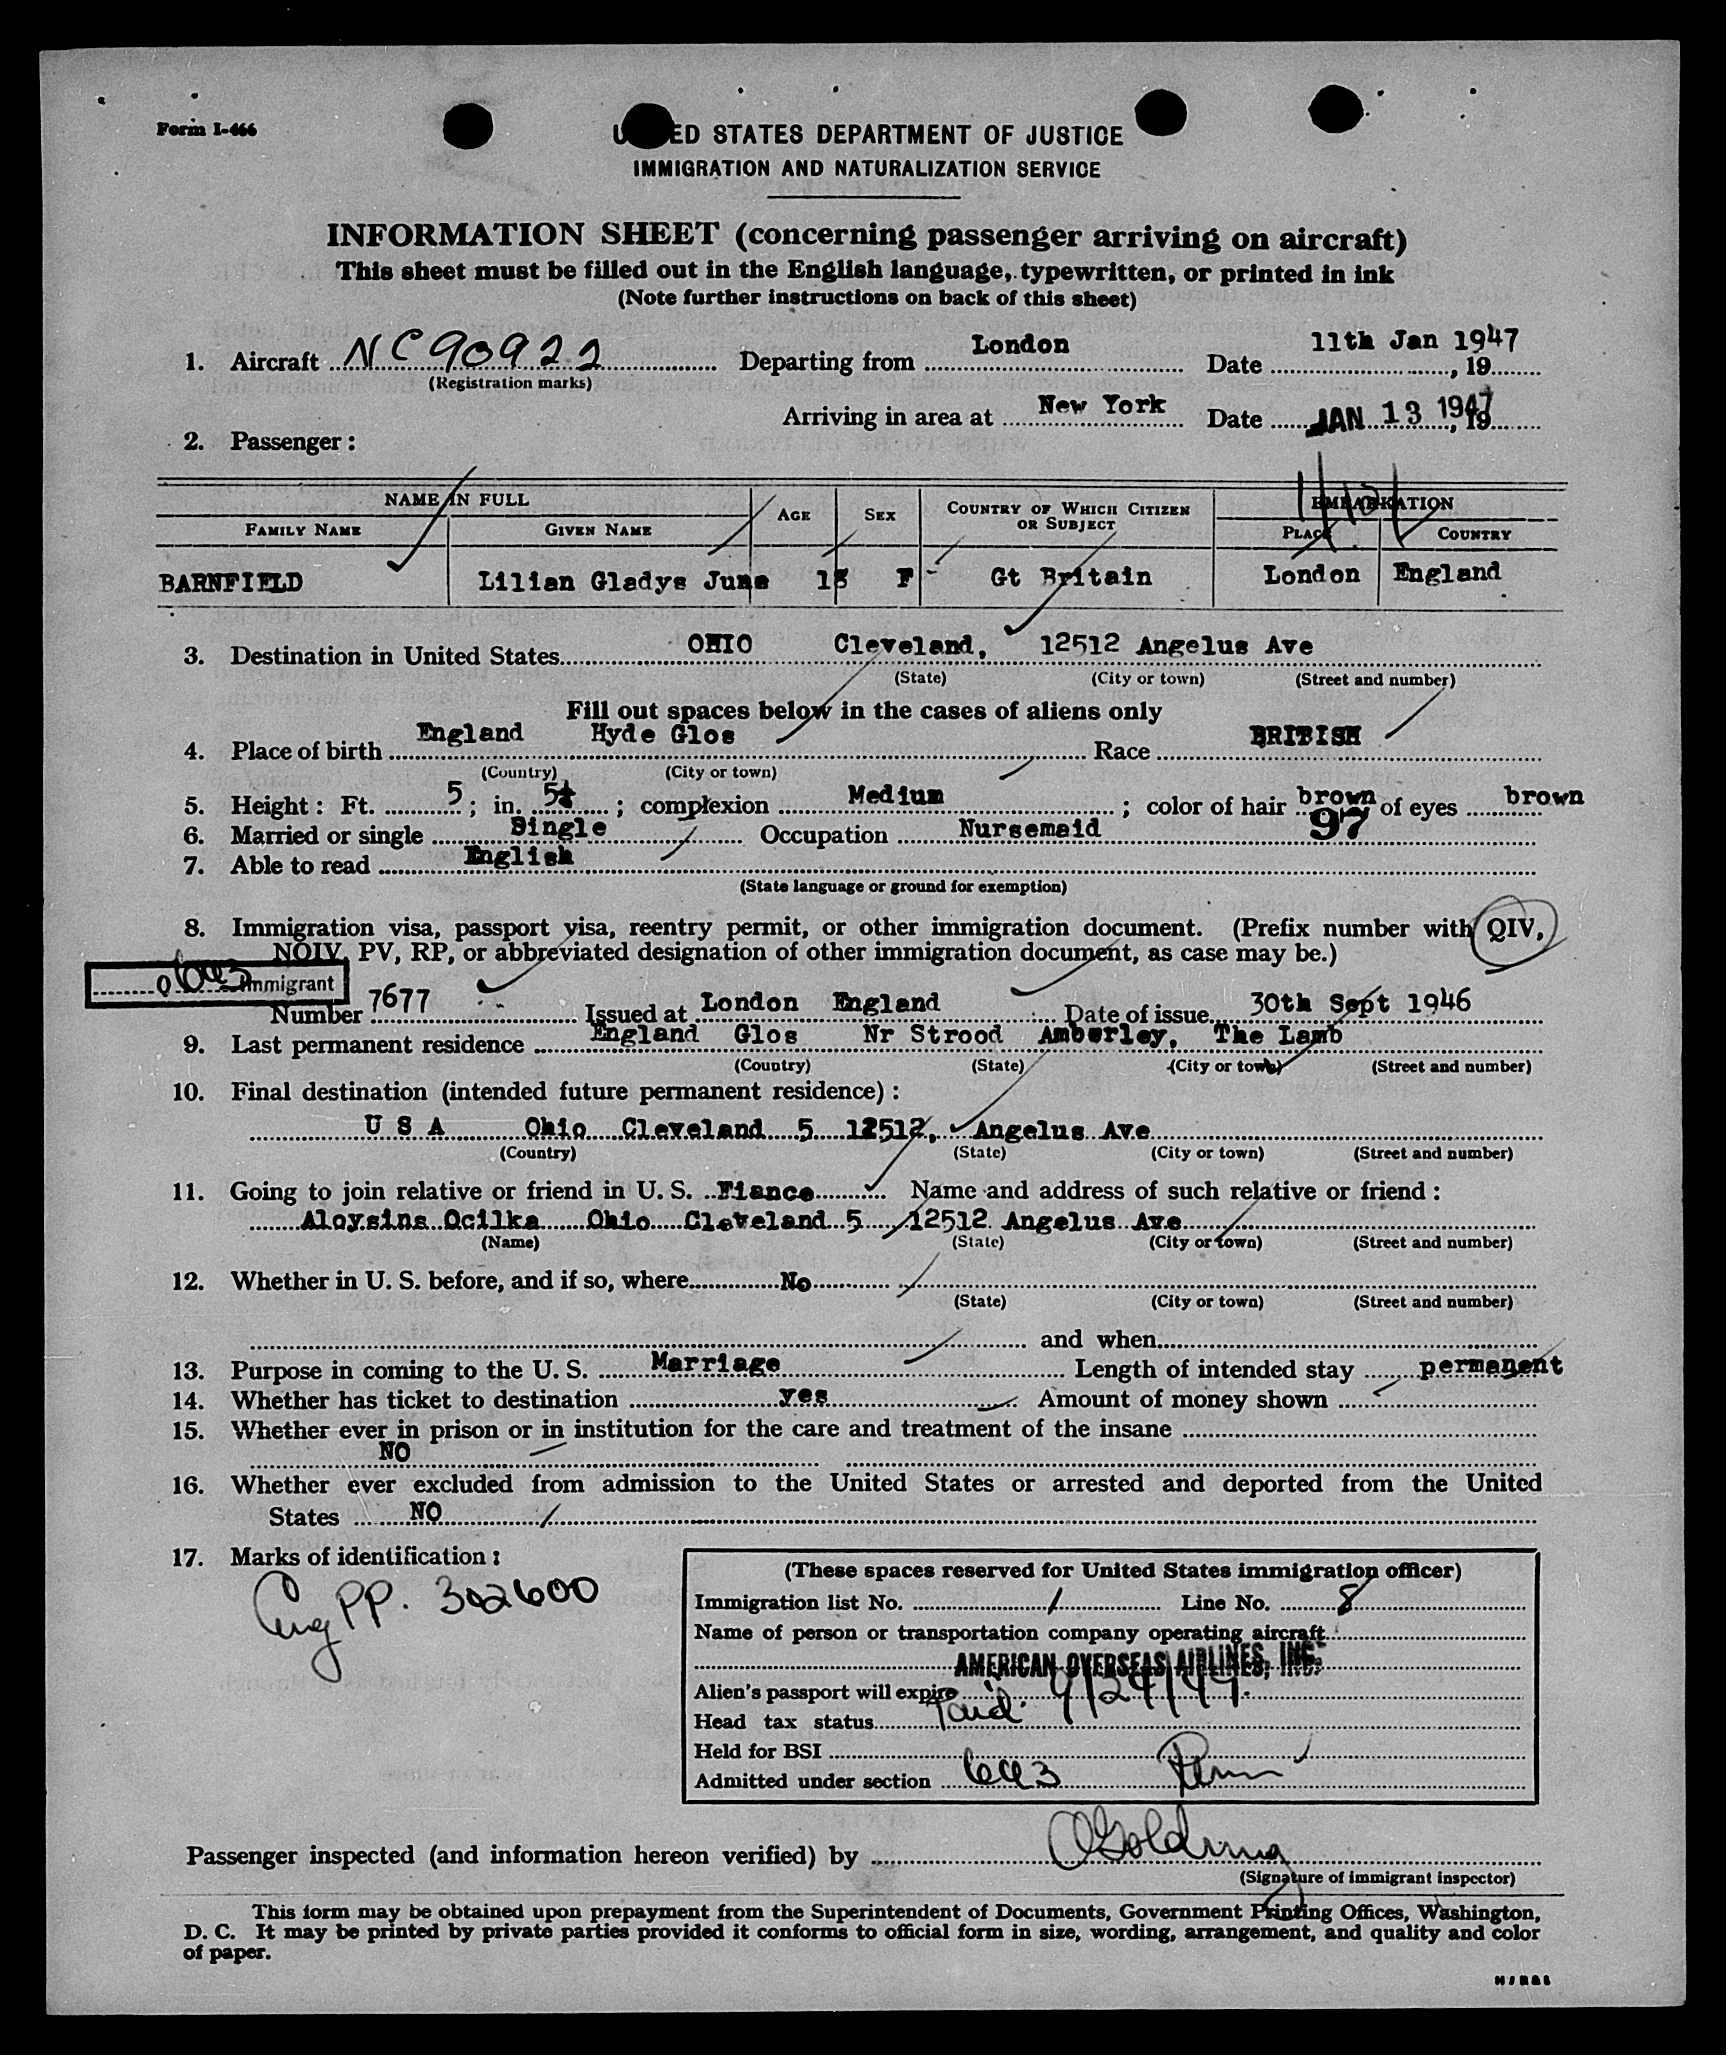 Form I-466
UNITED STATES DEPARTMENT OF JUSTICE
IMMIGRATION AND NATURALIZATION SERVICE
INFORMATION SHEET (concerning passenger arriving on aircraft)
This sheet must be filled out in the English language, typewritten, or printed in ink
(Note further instructions on back of this sheet)
1. Aircraft NC90922 Departing from London Date 11th Jan 1947, 19
(Registration marks)
Arriving in area at New York Date JAN 13 1947, 19
2. Passenger:
NAME IN FULL AGE SEX COUNTRY OF WHICH CITIZEN OR SUBJECT EMBARKATION
FAMILY NAME GIVEN NAME PLACE COUNTRY
BARNFIELD Lilian Gladys June 18 F Gt Britain London England
3. Destination in United States OHIO Cleveland, 12512 Angelus Ave
(State) (City or town) (Street and number)
Fill out spaces below in the cases of aliens only
4. Place of birth England Hyde Glos Race BRITISH
(Country) (City or town)
5. Height: Ft. 5; in. 5½; complexion Medium; color of hair brown of eyes brown
6. Married or single Single Occupation Nursemaid 97
7. Able to read English
(State language or ground for exemption)
8. Immigration visa, passport visa, reentry permit, or other immigration document. (Prefix number with QIV,
NQIV, PV, RP, or abbreviated designation of other immigration document, as case may be.)
Q 6a3 Immigrant
Number 7677 Issued at London England Date of issue 30th Sept 1946
9. Last permanent residence England Glos Nr Strood Amberley, The Lamb
(Country) (State) (City or town) (Street and number)
10. Final destination (intended future permanent residence):
U S A Ohio Cleveland 5 12512, Angelus Ave
(Country) (State) (City or town) (Street and number)
11. Going to join relative or friend in U. S. Fiance Name and address of such relative or friend:
Aloysins Ocilka Ohio Cleveland 5 12512 Angelus Ave
(Name) (State) (City or town) (Street and number)
12. Whether in U. S. before, and if so, where No
(State) (City or town) (Street and number)
and when
13. Purpose in coming to the U. S. Marriage Length of intended stay permanent
14. Whether has ticket to destination yes Amount of money shown
15. Whether ever in prison or in institution for the care and treatment of the insane
NO
16. Whether ever excluded from admission to the United States or arrested and deported from the United
States NO
17. Marks of identification:
Eng PP. 302600
(These spaces reserved for United States immigration officer)
Immigration list No. 1 Line No. 8
Name of person or transportation company operating aircraft
AMERICAN OVERSEAS AIRLINES, INC.
Alien's passport will expire 9/24/49.
Head tax status Paid
Held for BSI
Admitted under section 6a3 Perm
Passenger inspected (and information hereon verified) by OGoldring
(Signature of immigrant inspector)
This form may be obtained upon prepayment from the Superintendent of Documents, Government Printing Offices, Washington,
D. C. It may be printed by private parties provided it conforms to official form in size, wording, arrangement, and quality and color
of paper.